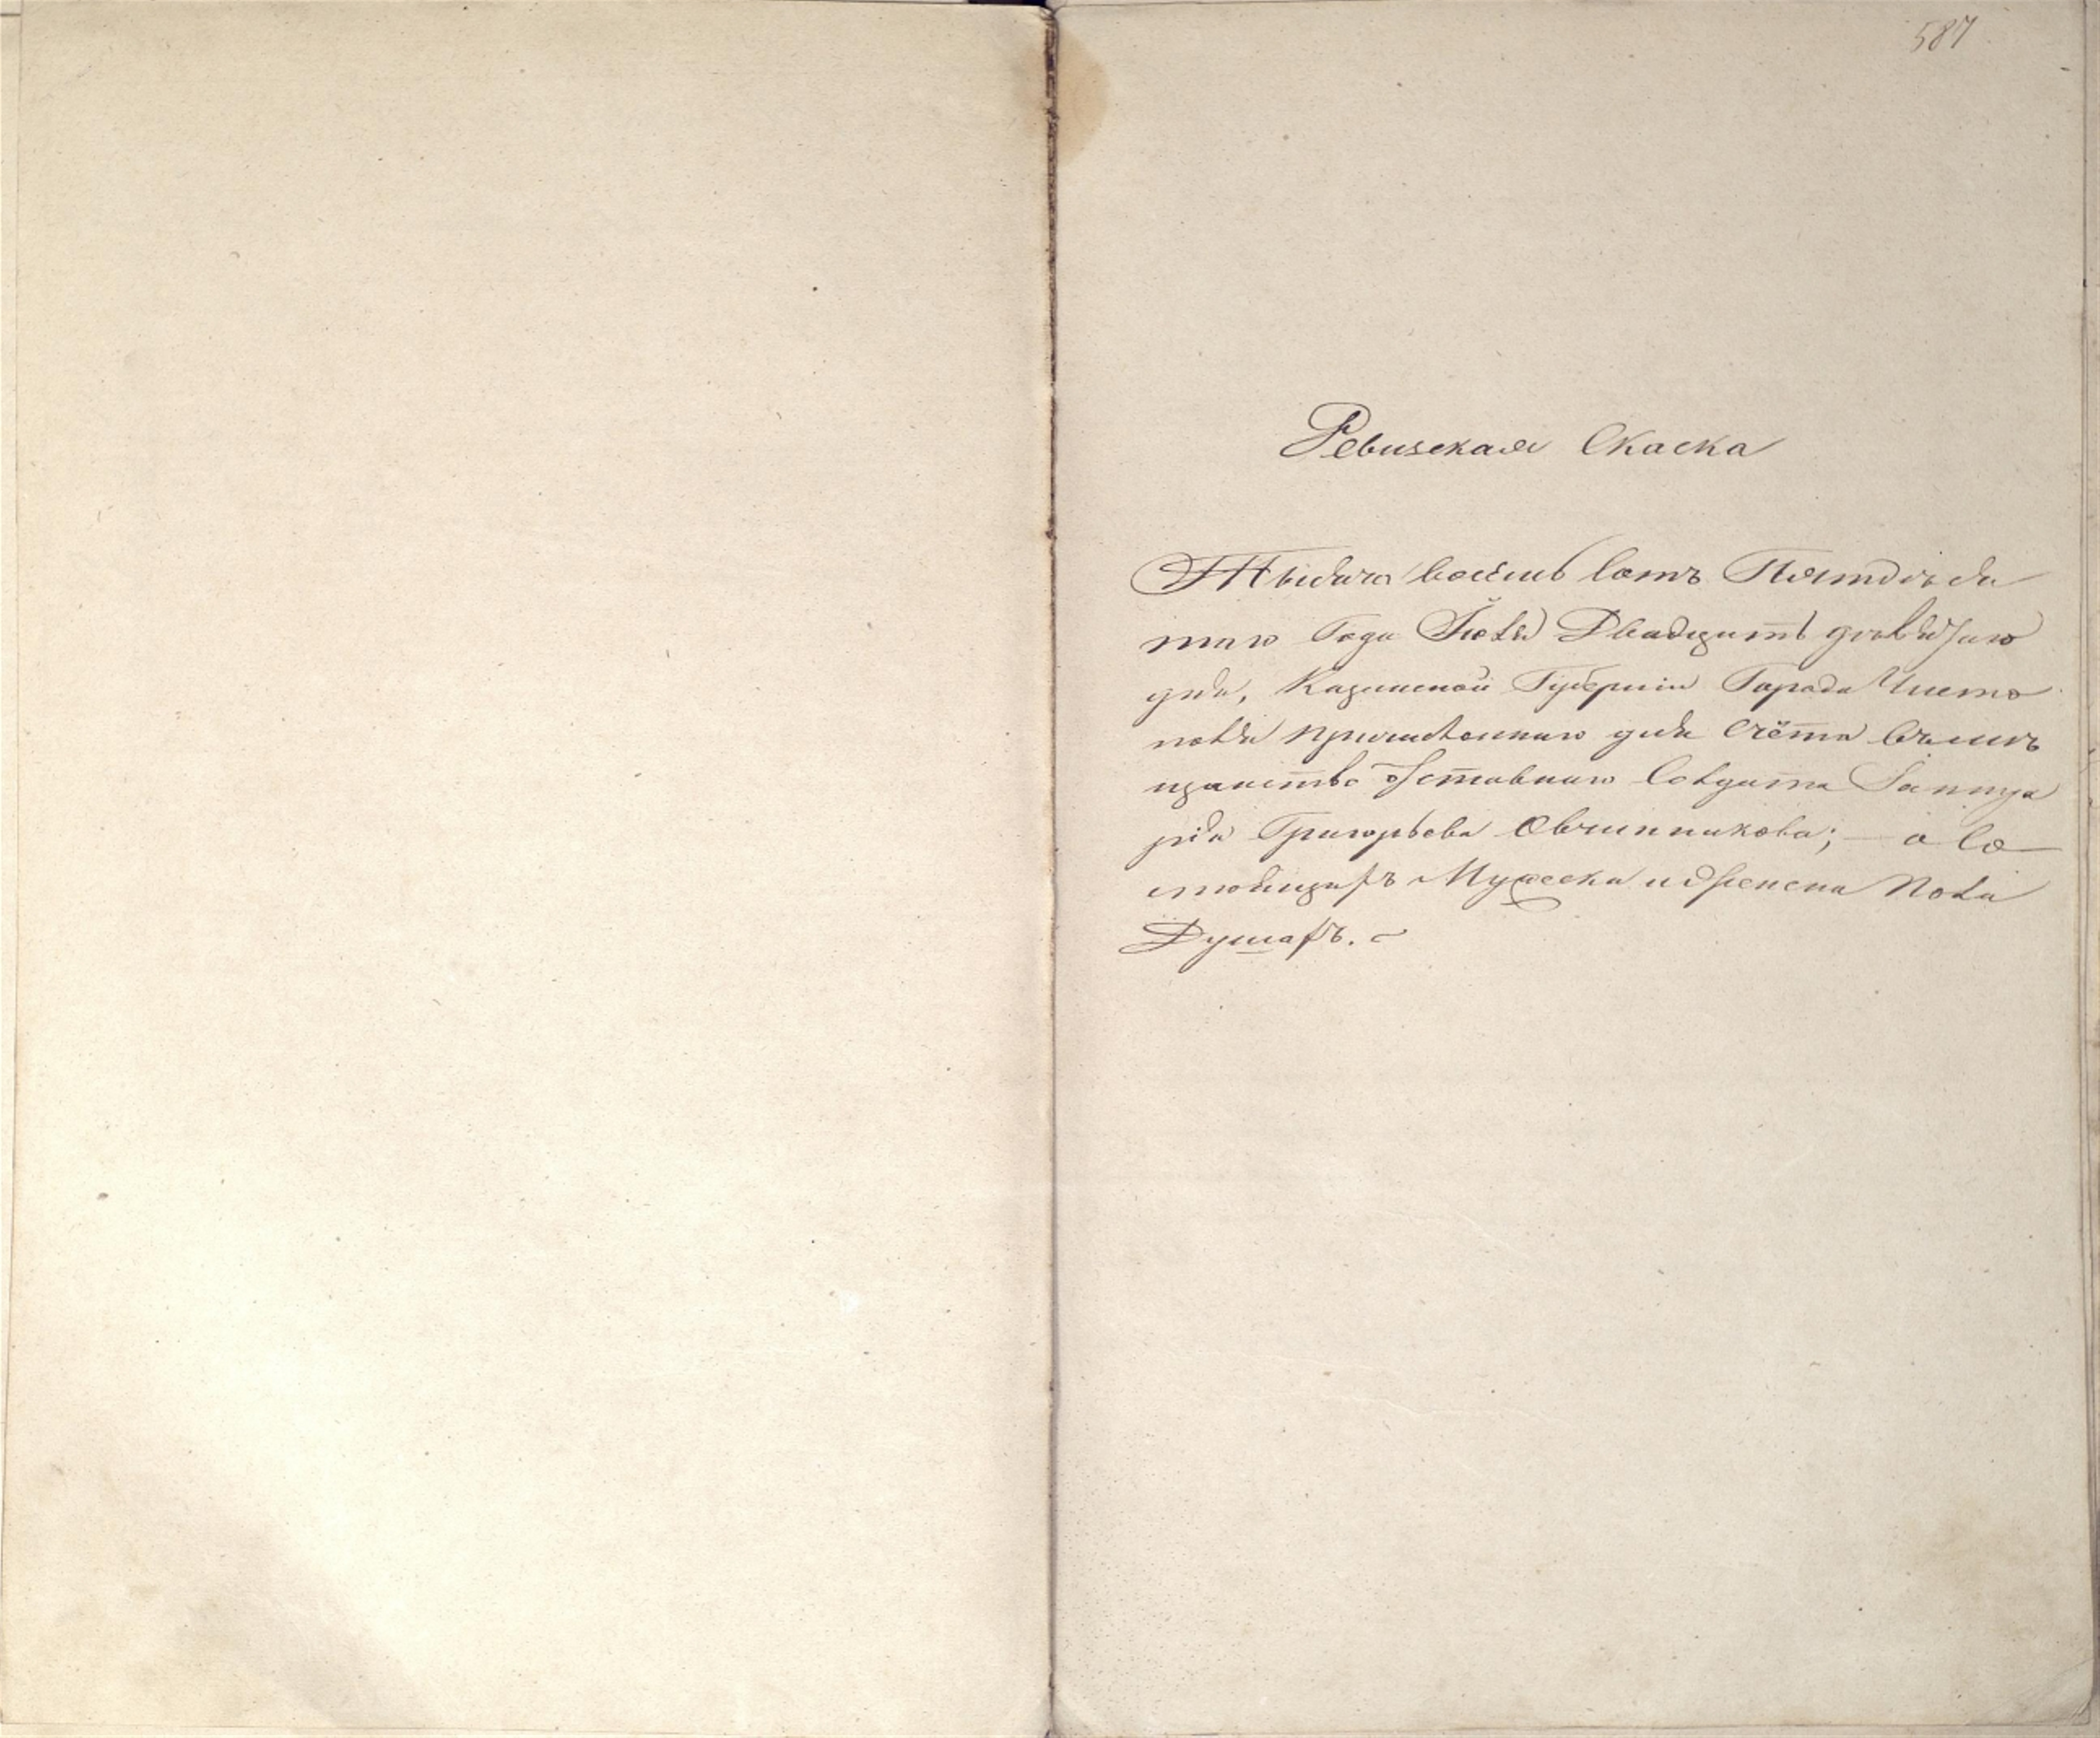 587
Ревизская Скаска
Тысяча восемь сотъ Пятдеся
таго Года Іюля Двадцать девятаго
дня, Казанской Губерніи Города Чисто
поля причисленнаго для счёта въ мѣ
щанство отставнаго Солдата Іаннуа
рія Григорьева Овчинникова; — о со
стоящихъ Мужеска и женска пола
Душахъ.